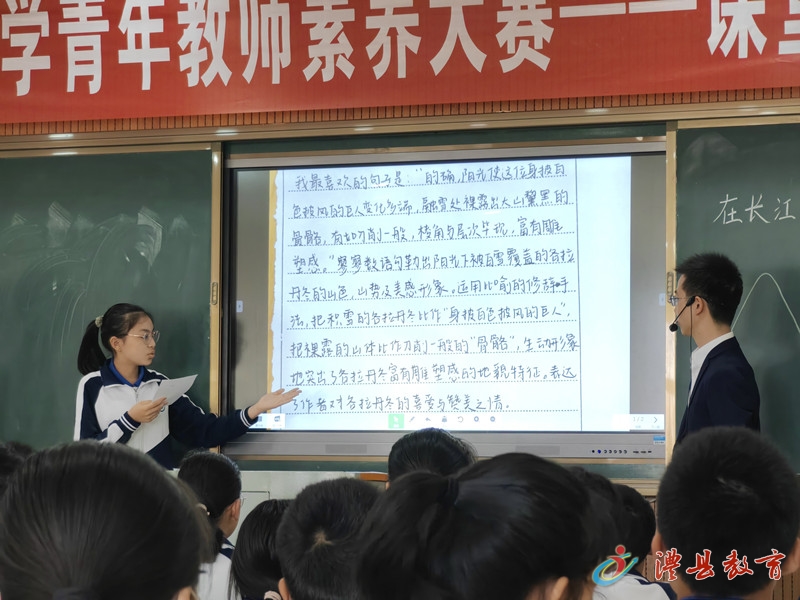 学青年教师素养大赛——课堂
在长江
我最喜欢的句子是：“的确，阳光使这位身披白
色披风的巨人变化多端，融雪处裸露出大山黧黑的
骨骼，有如刀削一般，棱角与层次毕现，富有雕
塑感。”寥寥数语勾勒出阳光下被白雪覆盖的各拉
丹冬的山色，山势及美感形象。运用比喻的修辞手
法，把积雪的各拉丹冬比作“身披白色披风的巨人”，
把裸露的山体比作刀削一般的“骨骼”，生动形象
地突出了各拉丹冬富有雕塑感的地貌特征。表达
了作者对各拉丹冬的喜爱与赞美之情。
澧县教育